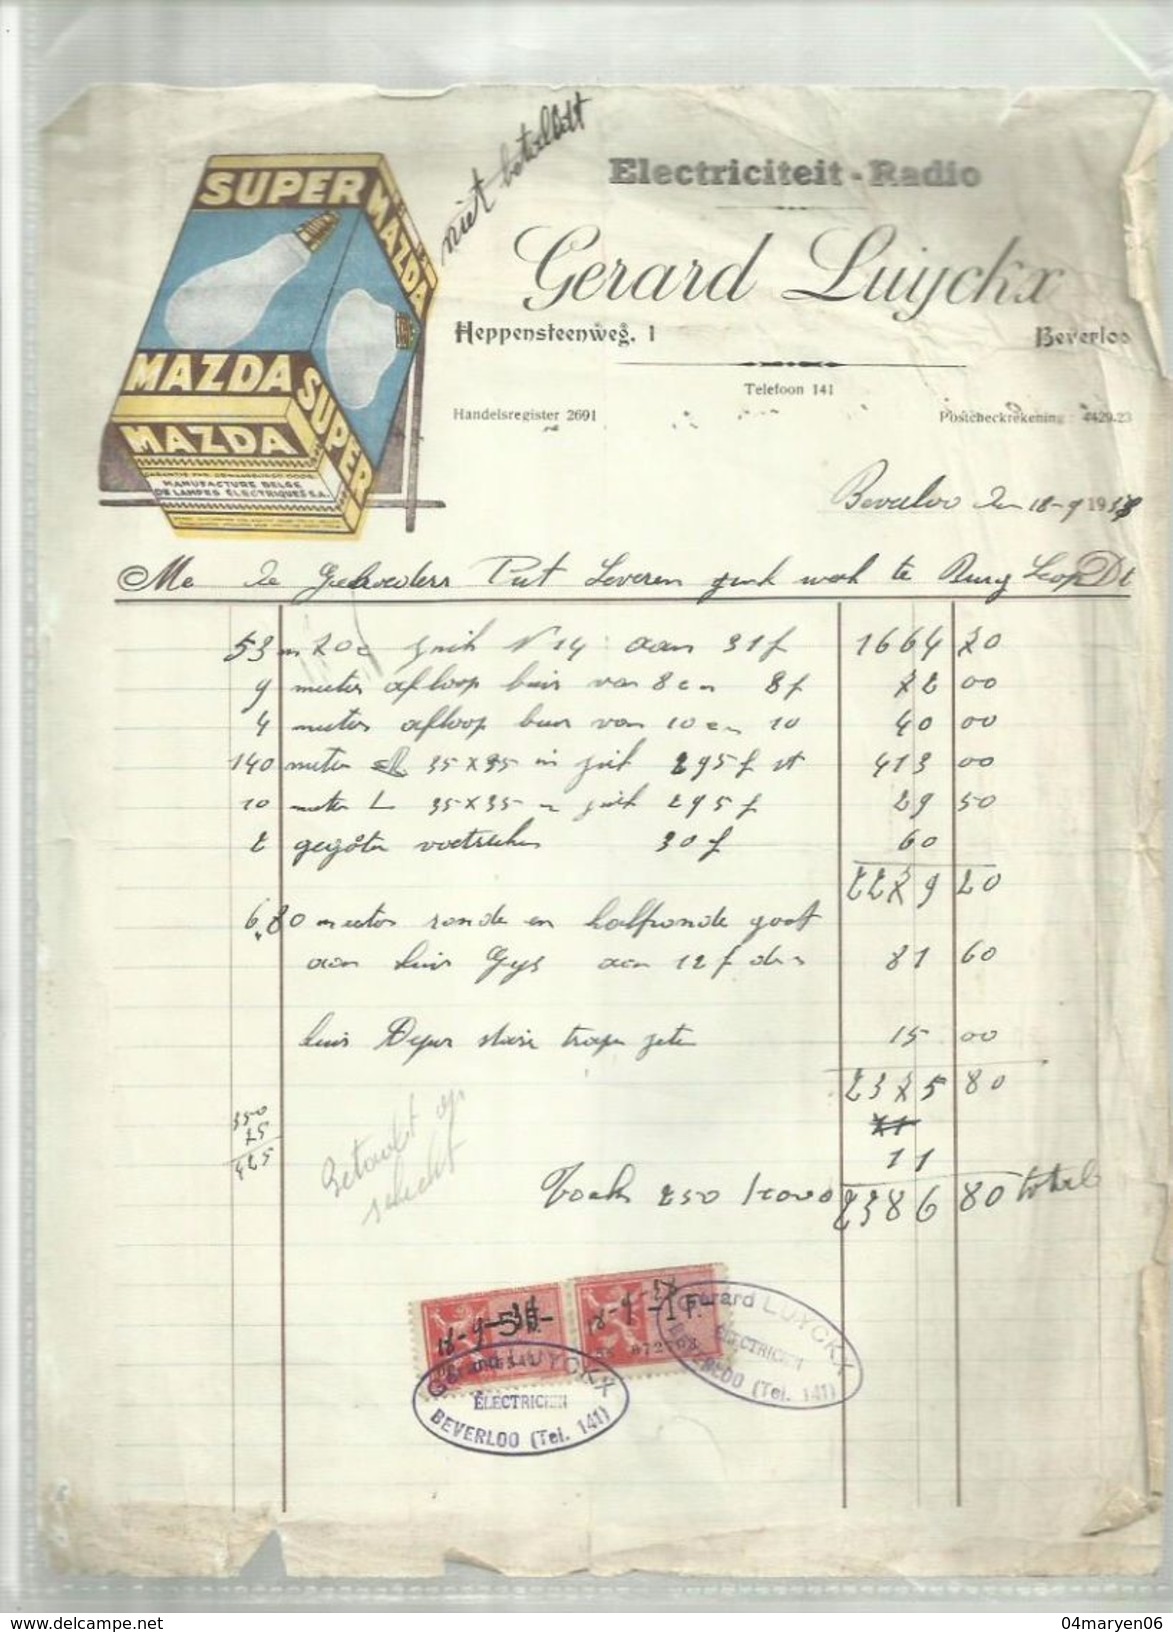 niet betaald
SUPER MAZDA
MAZDA SUPER
MAZDA
MANUFACTURE BELGE
DE LAMPES ÉLECTRIQUES S.A.
Electriciteit - Radio
Gerard Luyckx
Heppensteenweg, 1 Beverloo
Telefoon 141
Handelsregister 2691 Postcheckrekening : 4429.23
Beverloo den 18-9 1938
Me de Gebroeders Put Leveren zink werk te Burg Leop
53 m 70 c zink N 14 aan 31 f 1664 70
9 meter afloop buis van 8 cm 8 f 72 00
4 meter afloop buis van 10 cm 10 40 00
140 meter 35 x 35 in zink 295 f 413 00
10 meter L 35 x 35 in zink 295 f 29 50
2 gegoten 30 f 60
2279 20
6.80 meter ronde en halfronde goot
aan huis Gys aan 12 f 81 60
huis 15 00
2375 80
350
75
425
11
Betaald op
250 2386 80 total
18-9-38 5 F.-
18-9-38 -1 F.-
Gerard LUYCKX
ÉLECTRICIEN
BEVERLOO (Tel. 141)
Gerard LUYCKX
ÉLECTRICIEN
BEVERLOO (Tel. 141)
www.delcampe.net 04maryen06